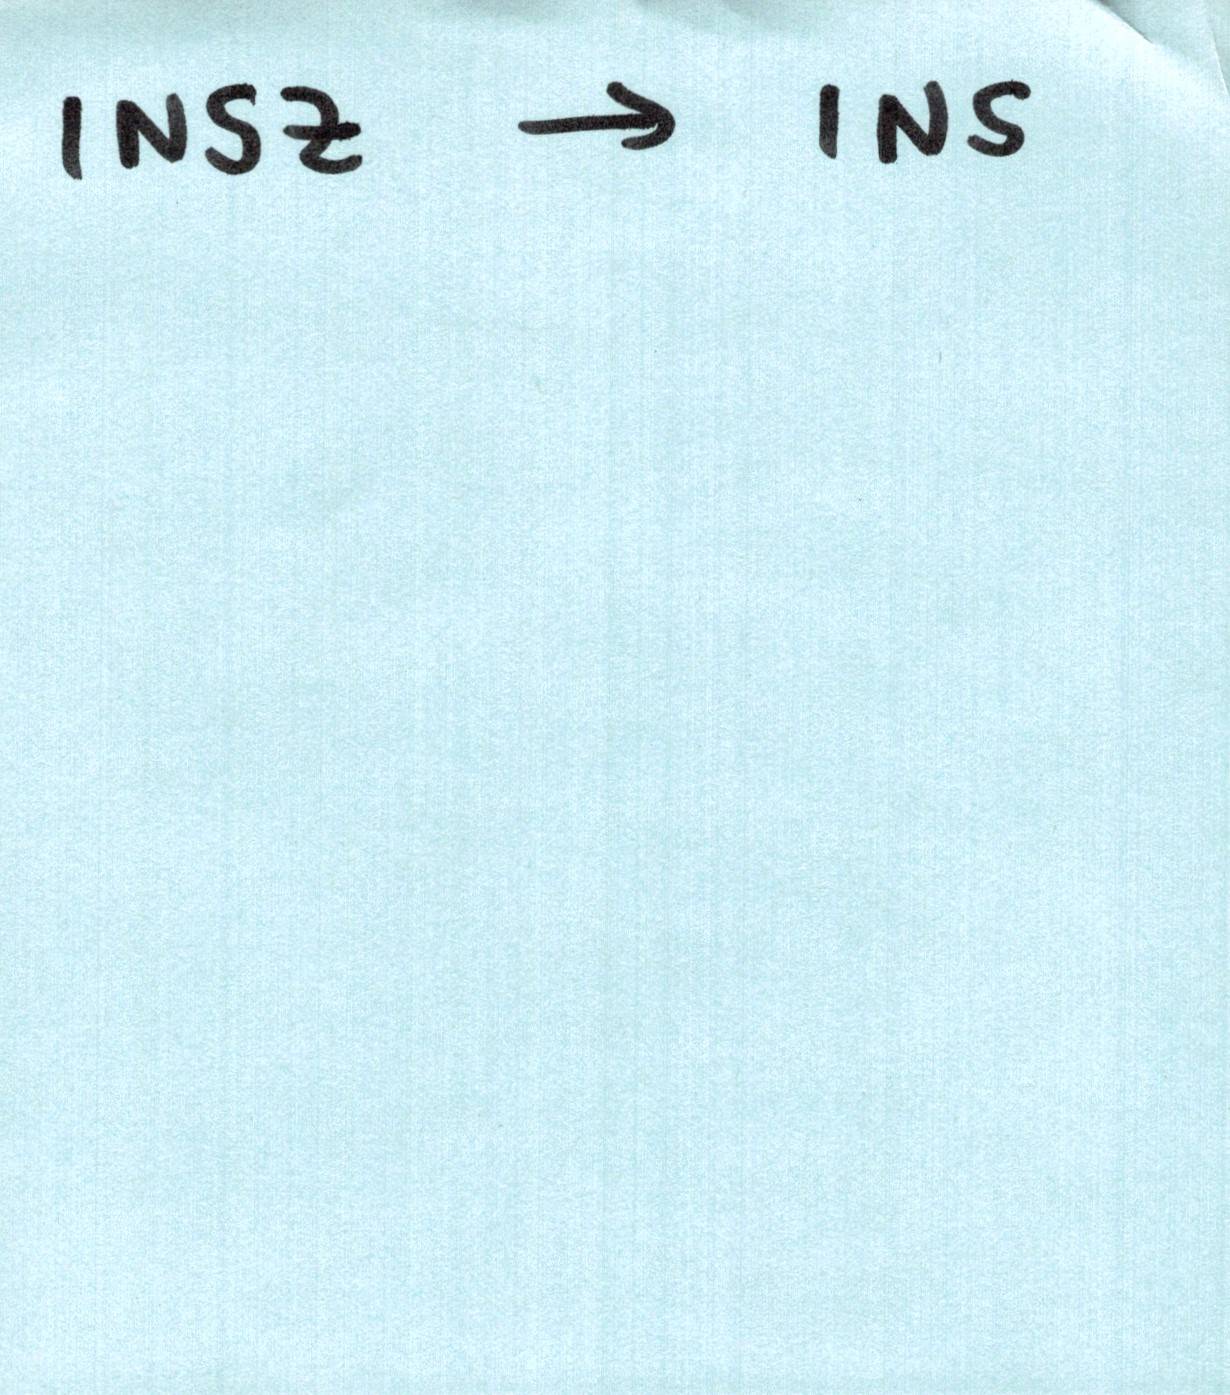 INSZ → INS